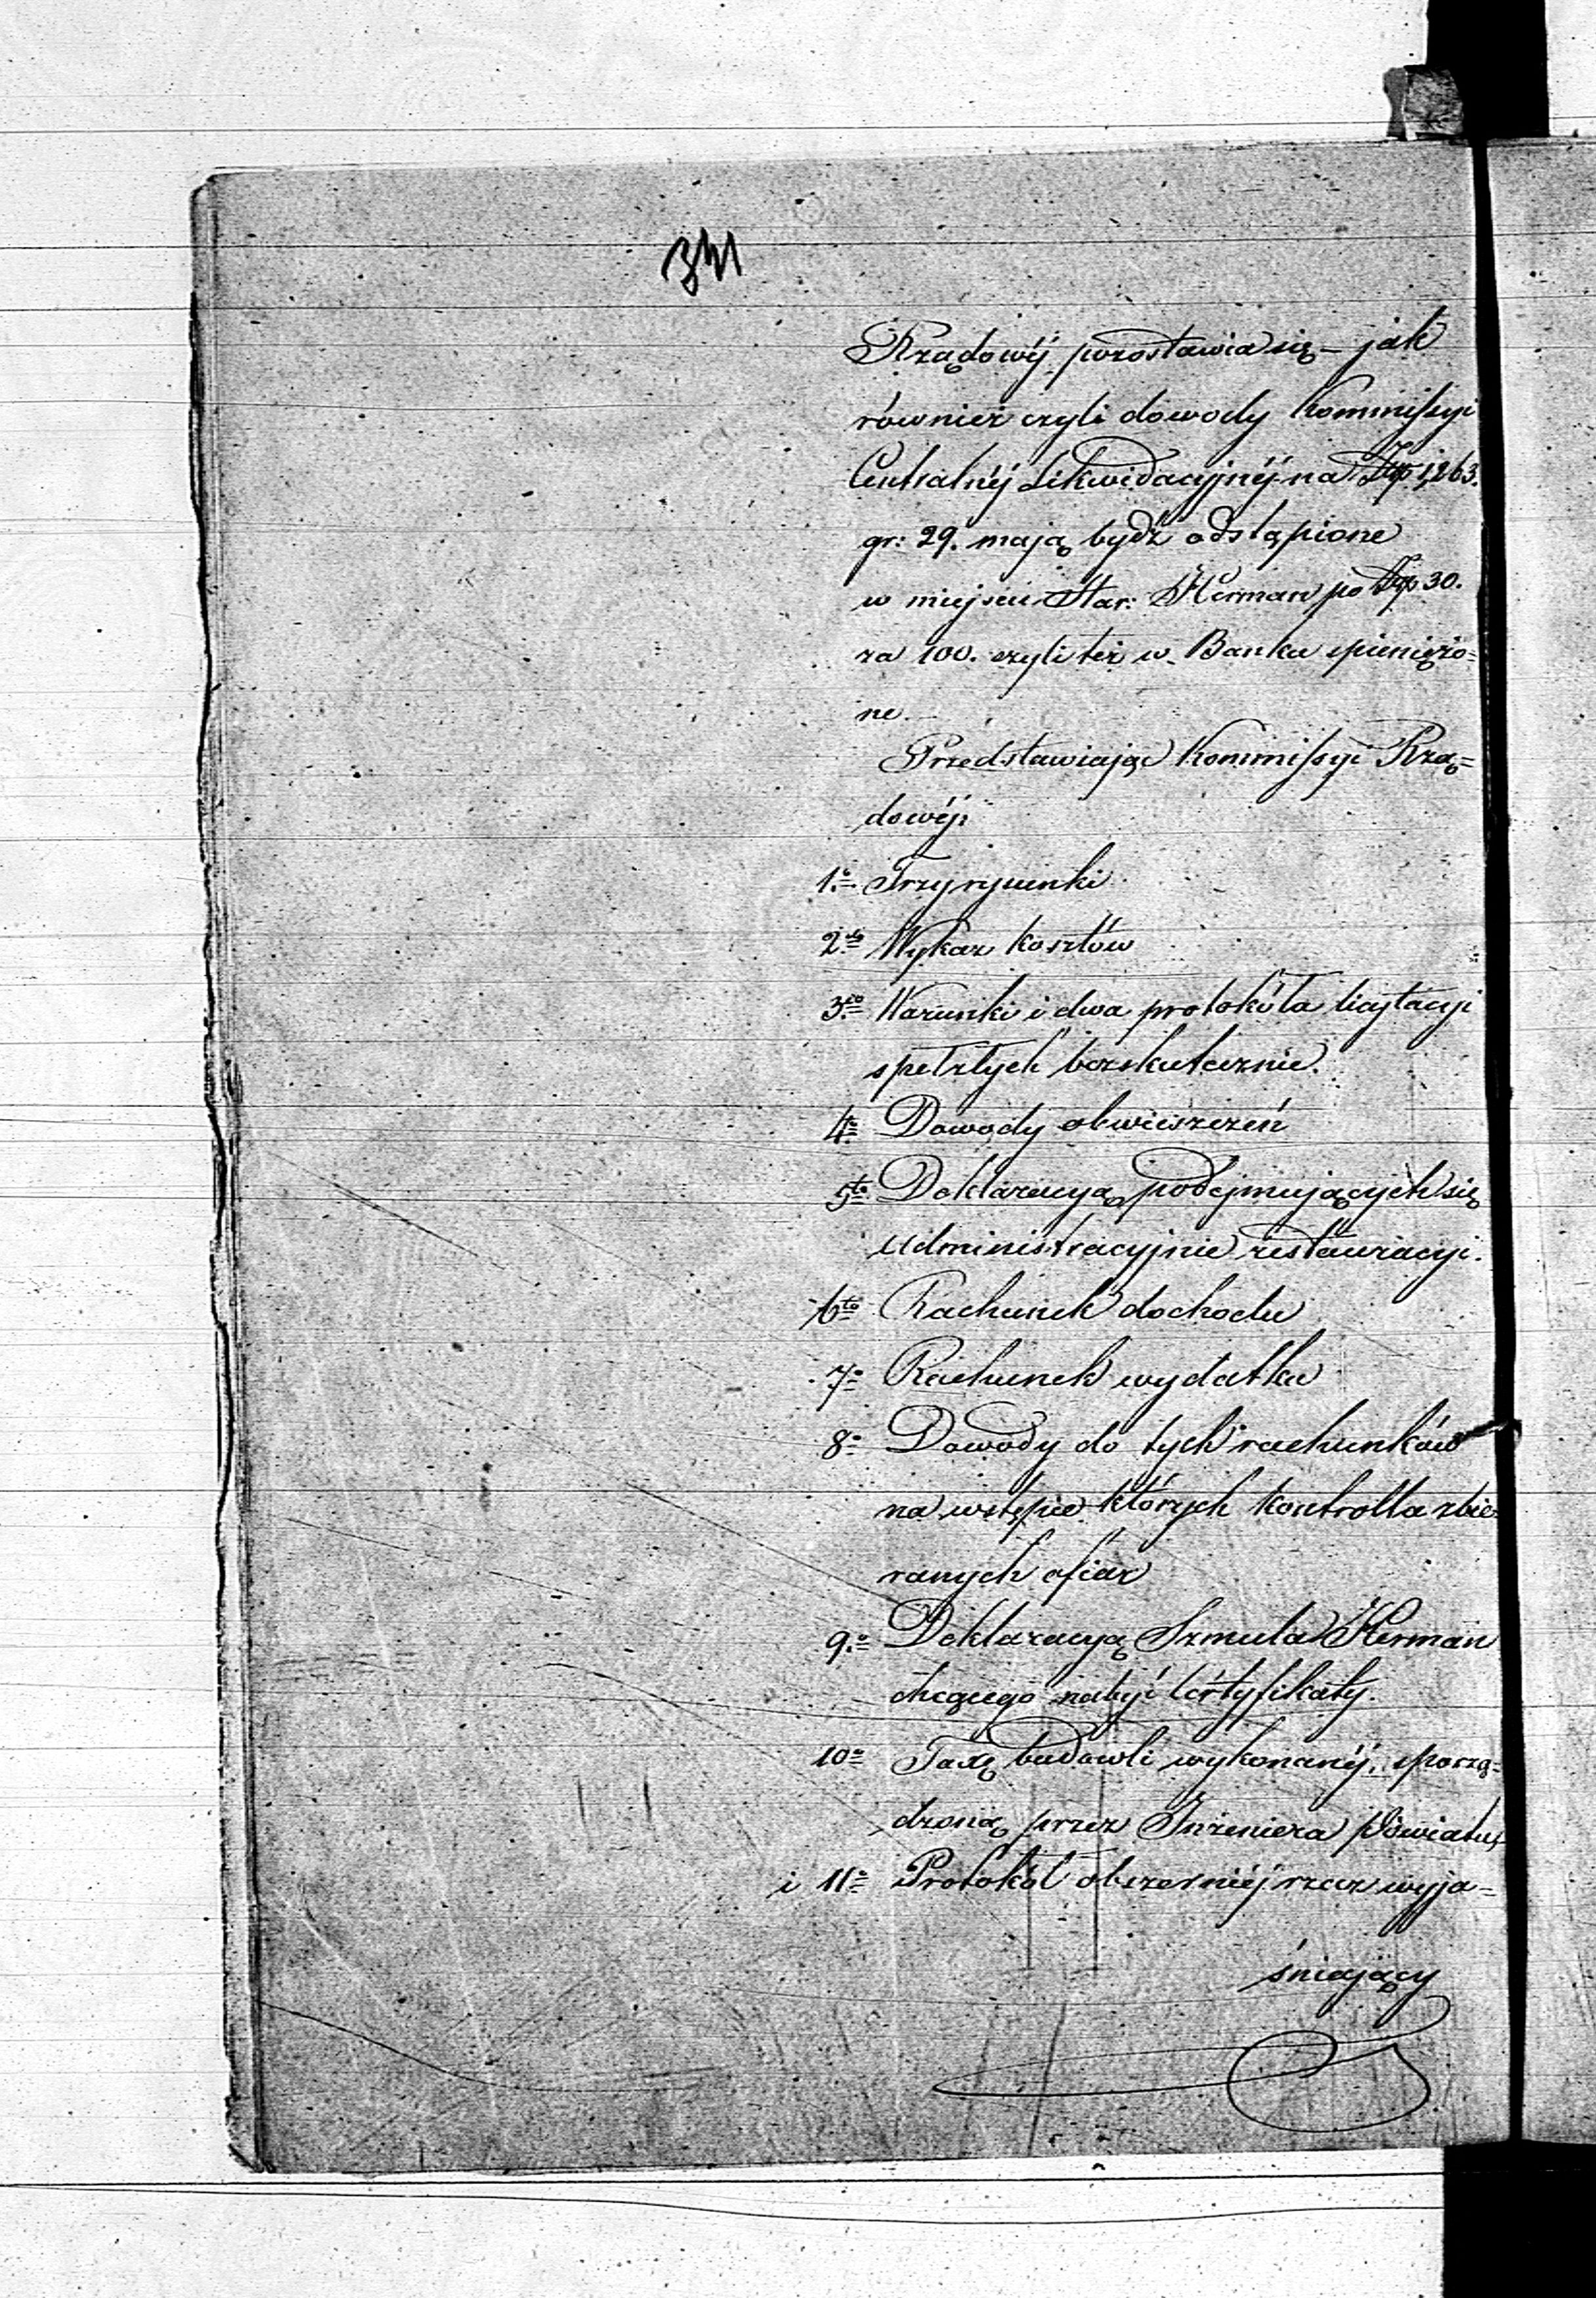 341
Rządowéj pozostawia się – jak
również czyli dowody Kommissyi
Centralnéj Likwidacyjnéj na Złp 1,263.
gr: 29. mają bydź odstąpione
w miejscu Star: Herman po Złp 30.
za 100. czyli też w Banku spieniężo=
ne.
Przedstawiając Kommissyi Rzą=
dowéj:
1.º Trzy rysunki
2.do Wykaz kosztów
3.io Warunki i dwa protokóła licytacyi
spełzłych bezskutecznie.
4.to Dowody obwieszczeń
5.to Deklaracyą podejmujących się
administracyjnie restauracyi.
6.to Rachunek dochodu
7.º Rachunek wydatku
8.º Dowody do tych rachunków
na wstępie których kontrolla zbie
ranych ofiar
9.º Deklaracyą Szmula Herman
chcącego nabyć certyfikaty.
10º Taxę budowli wykonanéj, sporzą=
dzoną przez Inżeniera Powiatu,
i 11º Protokół obszerniéj rzecz wyja=
śniający